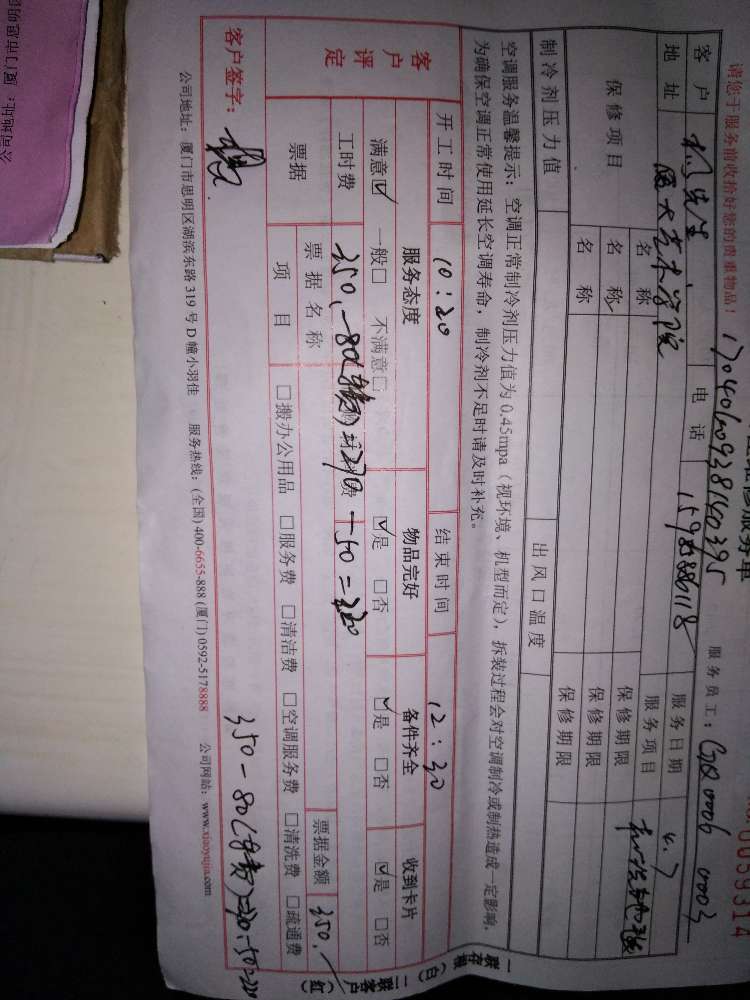 请您于服务前收拾好您的贵重物品！
服务员工：GQ0006 0003
客户
电话
服务日期 4.7
地址 厦大艺术学院
服务项目
保修项目 名称 保修期限
名称 保修期限
名称 保修期限
制冷剂压力值 出风口温度
空调服务温馨提示：空调正常制冷剂压力值为0.45mpa（视环境、机型而定），拆装过程会对空调制冷或制热造成一定影响，
为确保空调正常使用延长空调寿命，制冷剂不足时请及时补充。
开工时间 10:20 结束时间 12:30
客户评定 服务态度 物品完好 备件齐全 收到卡片
满意☑ 一般□ 不满意□ ☑是 □否 ☑是 □否 ☑是 □否
工时费 350.-80 =270-50=220
票据 票据名称 票据金额 350.
项目 □搬办公用品 □服务费 □清洁费 □空调服务费 □清洗费 □疏通费
客户签字：
350-80
公司地址：厦门市思明区湖滨东路319号D幢小羽佳 服务热线：(全国)400-6655-888 (厦门)0592-5178888 公司网站：www.xiaoyujia.com
一联存根（白）二联客户（红）